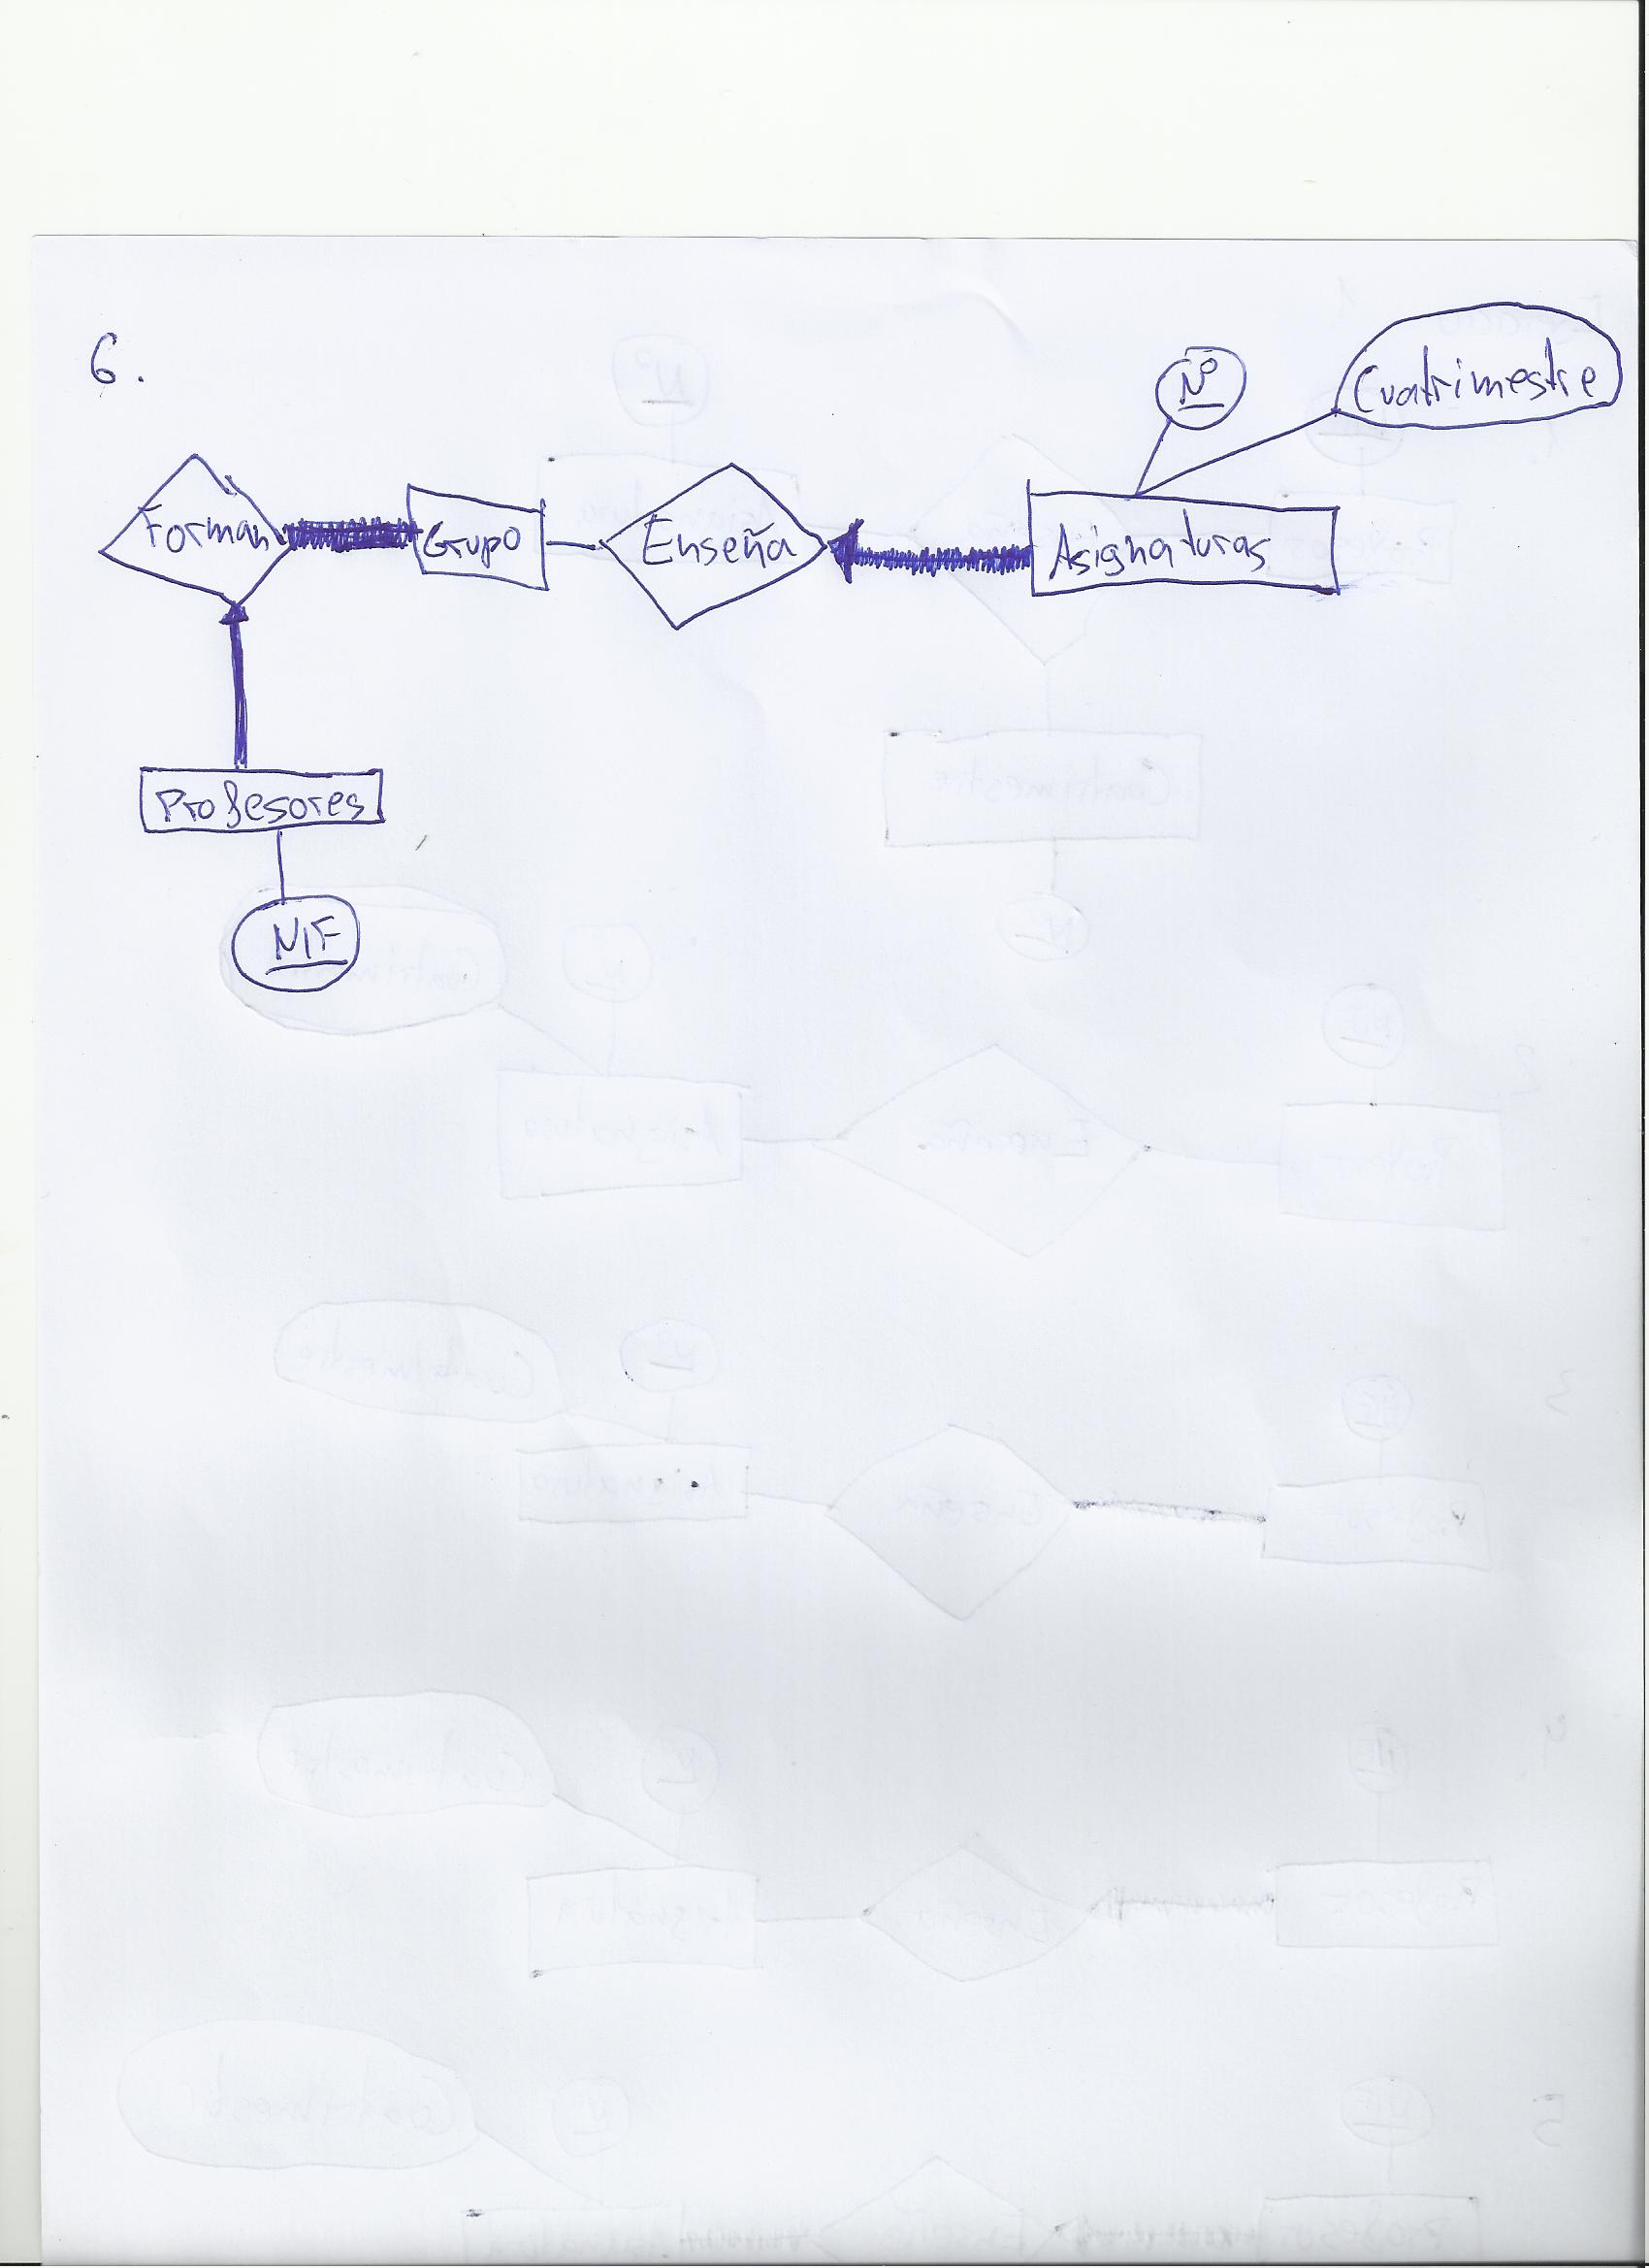 6.
Nº
Cuatrimestre
Forman
Grupo
Enseña
Asignaturas
Profesores
NIF